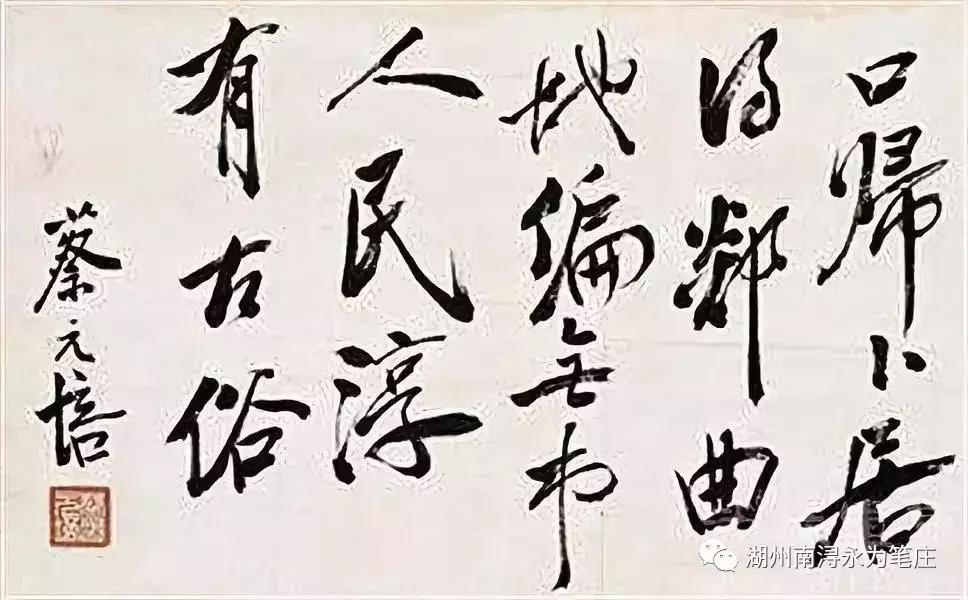 口歸卜居
得鄰曲
地偏無市
人民淳
有古俗
蔡元培
湖州南浔永为笔庄